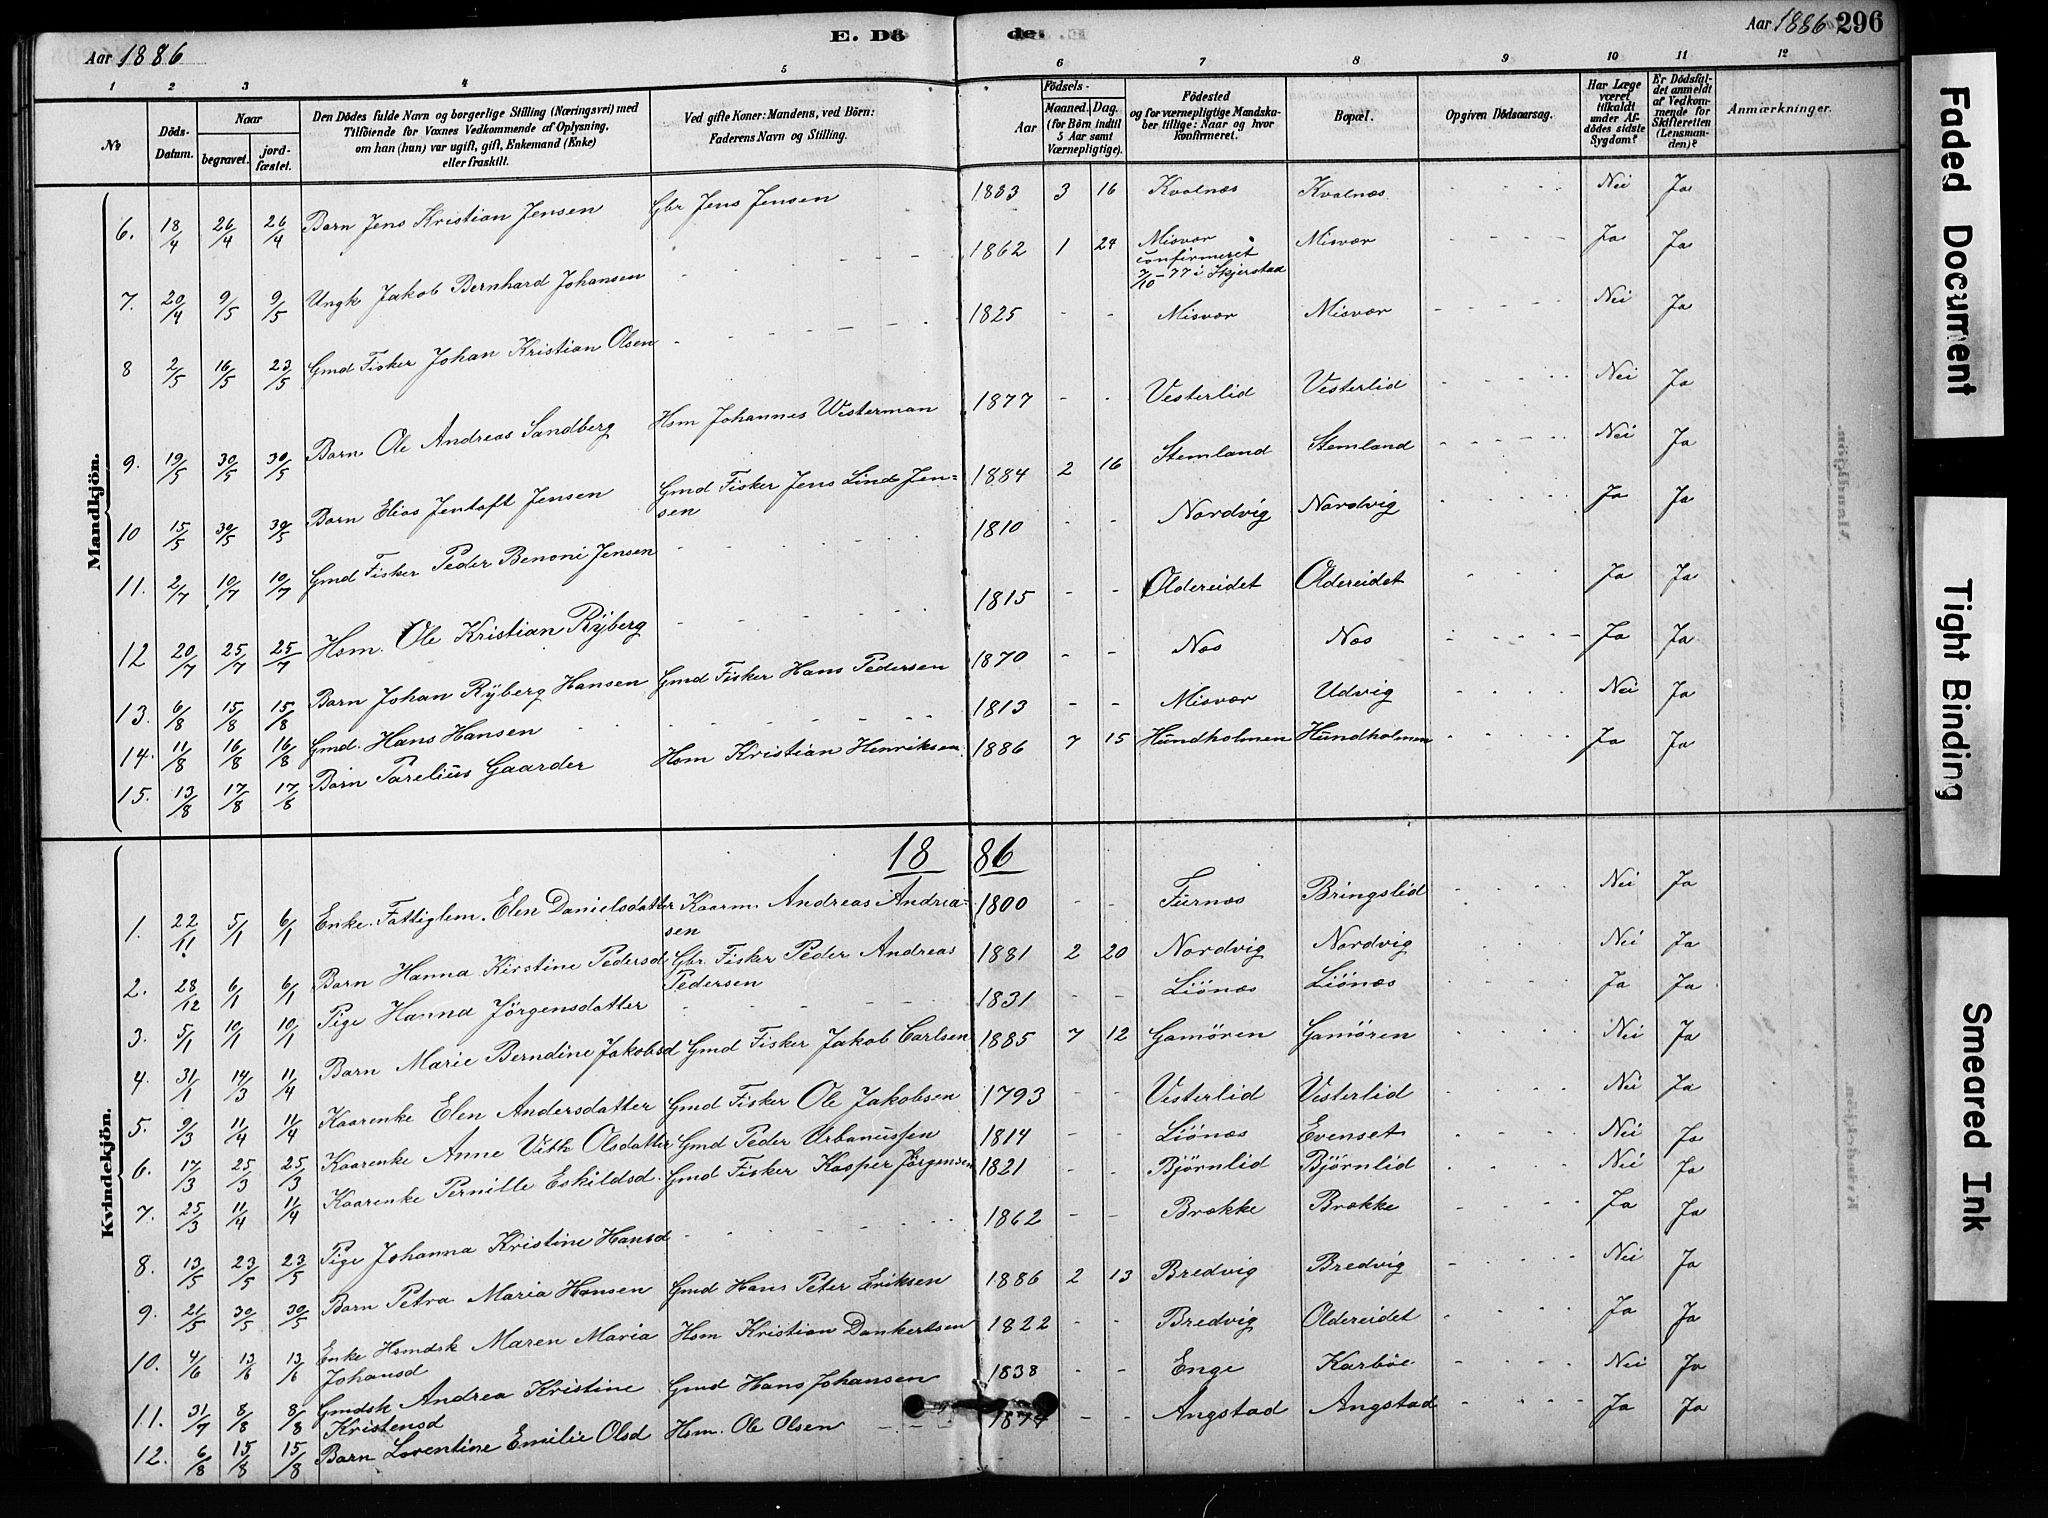 Aar 1886
E. Dö
de.
Aar 1886
296
1 2 3 4 5 6 7 8 9 10 11 12
No
Döds-Datum.
Naar
begravet.
jordfæstet.
Den Dödes fulde Navn og borgerlige Stilling (Næringsvei) med
Tilföiende for Voxnes Vedkommende af Oplysning,
om han (hun) var ugift, gift, Enkemand (Enke)
eller fraskilt.
Ved gifte Koner: Mandens, ved Börn:
Faderens Navn og Stilling.
Aar
Födsels-
Maaned. Dag.
(for Börn indtil
5 Aar samt
Værnepligtige).
Födested
og for værnepligtige Mandska-
ber tillige: Naar og hvor
konfirmeret.
Bopæl.
Opgiven Dödsaarsag.
Har Læge
været
tilkaldt
under Af-
dödes sidste
Sygdom?
Er Dödsfal-
det anmeldt
af Vedkom-
mende for
Skifteretten
(Lensman-
den)?
Anmærkninger.
Mandkjön.
6. 18/4 26/4 26/4 Barn Jens Kristian Jensen Gbr Jens Jensen 1883 3 16 Kvalnæs Kvalnæs Nei Ja
7. 20/4 9/5 9/5 Ungk Jakob Bernhard Johansen - 1862 1 24 Misvær confirmeret 7/10-77 i Skjerstad Misvær Ja Ja
8 2/5 16/5 23/5 Gmd Fisker Johan Kristian Olsen - 1825 - - Misvær Misvær Nei Ja
9. 19/5 30/5 30/5 Barn Ole Andreas Sandberg Hsm Johannes Westerman 1877 - - Vesterlid Vesterlid Nei Ja
10 15/5 30/5 30/5 Barn Elias Jentoft Jensen Gmd Fisker Jens Linde Jensen 1884 2 16 Stemland Stemland Nei Ja
11. 2/7 10/7 10/7 Gmd Fisker Peder Benoni Jensen - 1810 - - Nordvig Nordvig Ja Ja
12 20/7 25/7 25/7 Hsm. Ole Kristian Ryberg - 1815 - - Oldereidet Oldereidet Ja Ja
13. 6/8 15/8 15/8 Barn Johan Ryberg Hansen Gmd Fisker Hans Pedersen 1870 - - Næs Næs Ja Ja
14. 11/8 16/8 16/8 Gmd. Hans Hansen - 1813 - - Misvær Udvig Nei Ja
15. 13/8 17/8 17/8 Barn Parelius Gaarder Hsm Kristian Henriksen 1886 7 15 Hundholmen Hundholmen Ja Ja
1886
Kvindekjön.
1. 22/11 5/1 6/1 Enke. Fattiglem. Elen Danielsdatter Kaarm. Andreas Andreasen 1800 - - Furnæs Bringslid Nei Ja
2. 28/12 6/1 6/1 Barn Hanna Kirstine Pedersd Gbr. Fisker Peder Andreas Pedersen 1881 2 20 Nordvig Nordvig Nei Ja
3. 5/1 10/1 10/1 Pige Hanna Jörgensdatter - 1831 - - Liönæs Liönæs Ja Ja
4. 31/1 14/3 11/4 Barn Marie Berndine Jakobsd Gmd Fisker Jakob Carlsen 1885 7 12 Gamøren Gamøren Nei Ja
5. 9/3 11/4 11/4 Kaarenke Elen Andersdatter Gmd Fisker Ole Jakobsen 1793 - - Vesterlid Vesterlid Nei Ja
6. 17/3 25/3 25/3 Kaarenke Anne Vith Olsdatter Gmd Peder Urbanussen 1814 - - Liönæs Evenset Nei Ja
7. 25/3 11/4 11/4 Kaarenke Pernille Eskildsd. Gmd Fisker Kasper Jörgensen 1821 - - Bjørnlid Bjørnlid Nei Ja
8. 13/5 23/5 23/5 Pige Johanna Kristine Hansd - 1862 - - Brække Brække Ja Ja
9. 21/5 30/5 30/5 Barn Petra Maria Hansen Gmd Hans Peter Eriksen 1886 2 13 Bredvig Bredvig Nei Ja
10. 4/6 13/6 13/6 Enke Hsmdsk Maren Maria Johansd Hsm Kristian Dankertsen 1822 - - Bredvig Oldereidet Ja Ja
11. 31/7 8/8 8/8 Gmdsk Andrea Kristine Kristensd Gmd Hans Johansen 1838 - - Enge Karbøe Nei Ja
12. 6/8 15/8 15/8 Barn Lorentine Emilie Olsd Hsm. Ole Olsen 1874 - - Angstad Angstad Ja Ja
Faded Document
Tight Binding
Smeared Ink